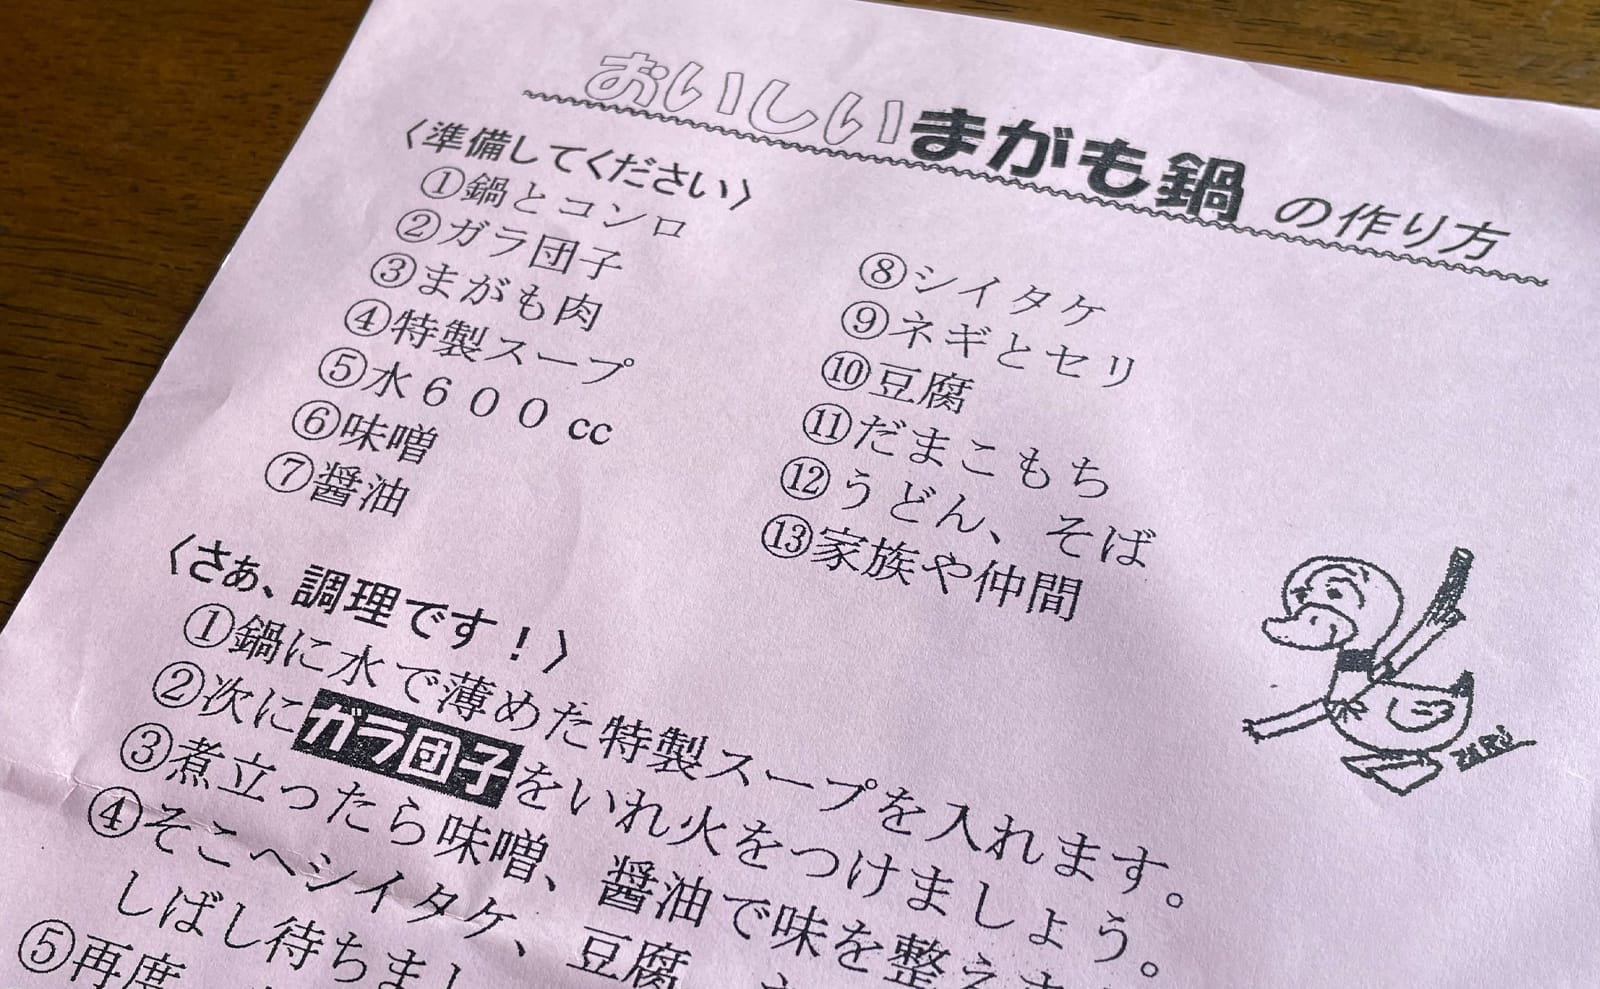 おいしいまがも鍋の作り方
〈準備してください〉
①鍋とコンロ
②ガラ団子
③まがも肉
④特製スープ
⑤水６００cc
⑥味噌
⑦醤油
⑧シイタケ
⑨ネギとセリ
⑩豆腐
⑪だまこもち
⑫うどん、そば
⑬家族や仲間
〈さぁ、調理です！〉
①鍋に水で薄めた特製スープを入れます。
②次にガラ団子をいれ火をつけましょう。
③煮立ったら味噌、醤油で味を整えま
④そこへシイタケ、豆腐、
しばし待ちまし
⑤再度